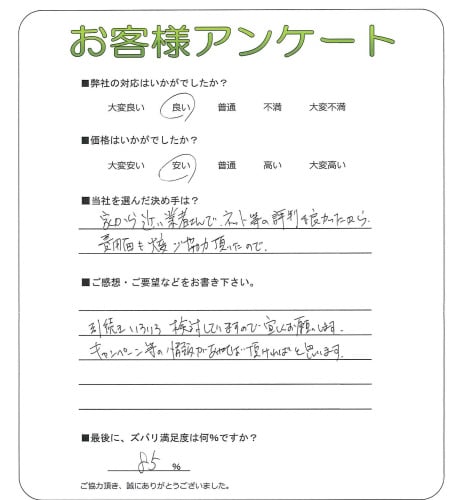 お客様アンケート
■弊社の対応はいかがでしたか？
大変良い 良い 普通 不満 大変不満
■価格はいかがでしたか？
大変安い 安い 普通 高い 大変高い
■当社を選んだ決め手は？
家から近い業者さんで、ネット等の評判も良かったから。
費用面も大変ご協力頂いたので。
■ご感想・ご要望などをお書き下さい。
引続きいろいろ検討していますので宜しくお願いします。
キャンペーン等の情報があれば頂ければと思います。
■最後に、ズバリ満足度は何％ですか？
85 ％
ご協力頂き、誠にありがとうございました。